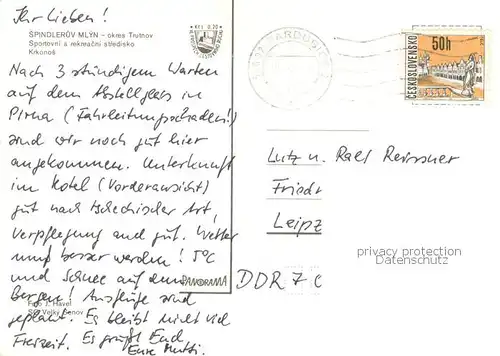 Ihr Lieben!
ŠPINDLERŮV MLÝN – okres Trutnov
Sportovní a rekreační středisko
Krkonoš
Kčs 0,20
Nach 3 stündigem Warten
auf dem Abstellgleis in
Pirna (Fahrleitungsschaden!)
sind wir noch gut hier
angekommen. Unterkunft
im Hotel (Vorderansicht)
gut nach tschechischer Art,
Verpflegung auch gut. Wetter
muß besser werden! 5°C
und Schnee auf den
Bergen! Ausflüge sind
geplant. Es bleibt nicht viel
Freizeit. Es grüßt Euch
Eure Mutti.
Foto J. Havel
Velký Šenov
PANORAMA
PARDUBICE
50h
ČESKOSLOVENSKO
Lutz u. Ralf Reissner
Friedr
Leipz
DDR 7 C
privacy protection
Datenschutz